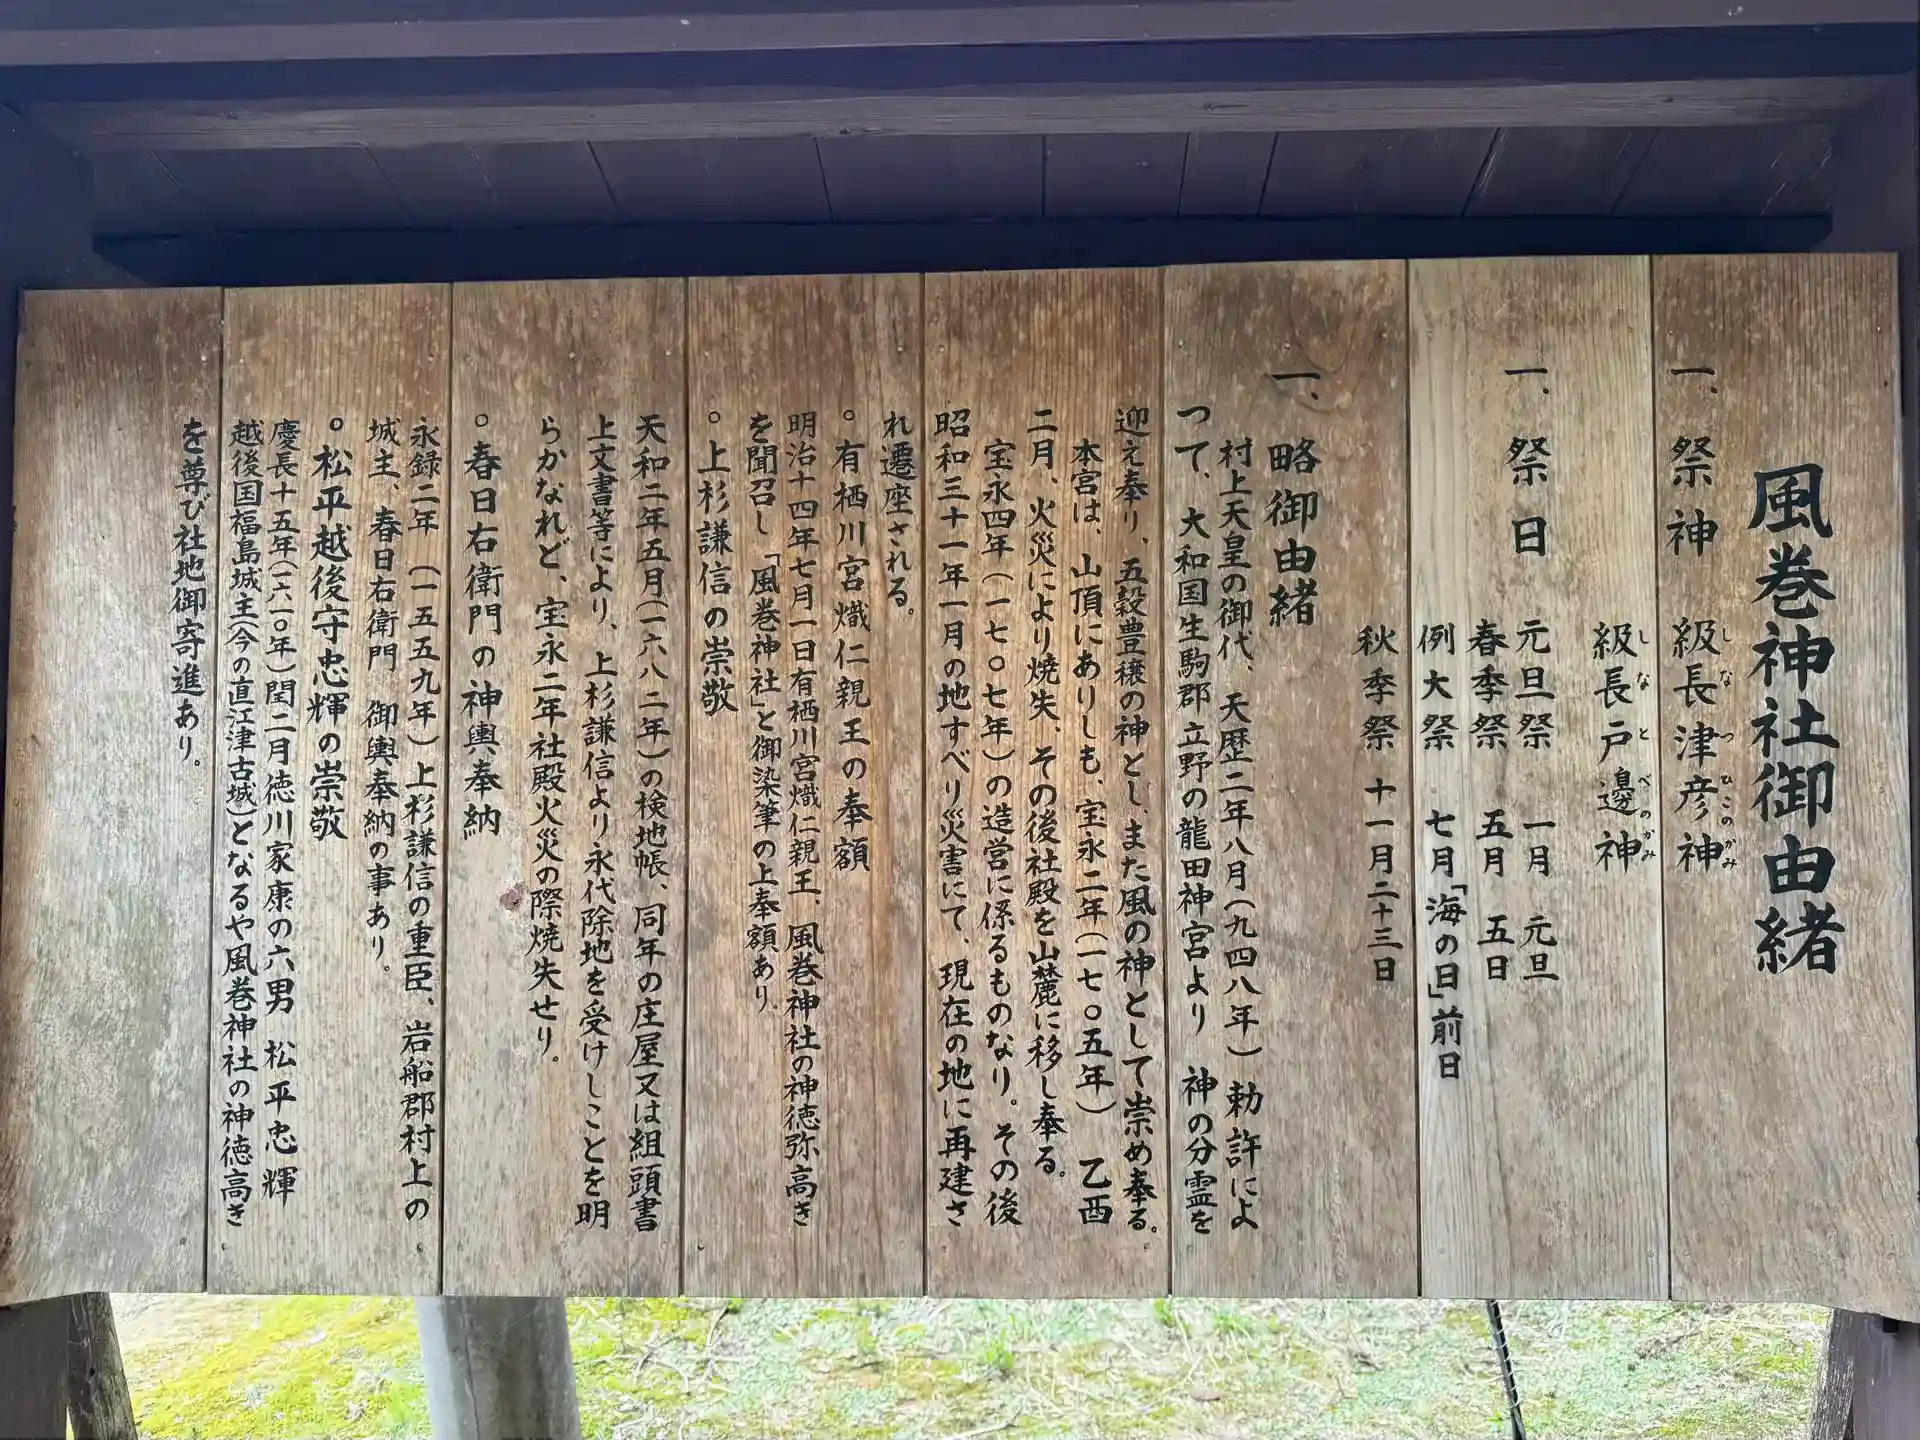 風巻神社御由緒
一、祭神　級長津彦神
しなつひこのかみ
級長戸邊神
しなとべのかみ
一、祭日　元旦祭　一月　元旦
春季祭　五月　五日
例大祭　七月「海の日」前日
秋季祭　十一月二十三日
一、略御由緒
村上天皇の御代、天歴二年八月(九四八年)勅許によ
つて、大和国生駒郡立野の龍田神宮より　神の分霊を
迎え奉り、五穀豊穣の神とし、また風の神として崇め奉る。
本宮は、山頂にありしも、宝永二年(一七〇五年)乙酉
二月、火災により焼失、その後社殿を山麓に移し奉る。
宝永四年(一七〇七年)の造営に係るものなり。その後
昭和三十一年一月の地すべり災害にて、現在の地に再建さ
れ遷座される。
○有栖川宮熾仁親王の奉額
明治十四年七月一日有栖川宮熾仁親王、風巻神社の神徳弥高き
を聞召し「風巻神社」と御染筆の上奉額あり。
○上杉謙信の崇敬
天和二年五月(一六八二年)の検地帳、同年の庄屋又は組頭書
上文書等により、上杉謙信より永代除地を受けしことを明
らかなれど、宝永二年社殿火災の際焼失せり。
○春日右衛門の神輿奉納
永録二年　(一五五九年)上杉謙信の重臣、岩船郡村上の
城主、春日右衛門　御輿奉納の事あり。
○松平越後守忠輝の崇敬
慶長十五年(一六一〇年)閏二月徳川家康の六男　松平忠輝
越後国福島城主(今の直江津古城)となるや風巻神社の神徳高き
を尊び社地御寄進あり。